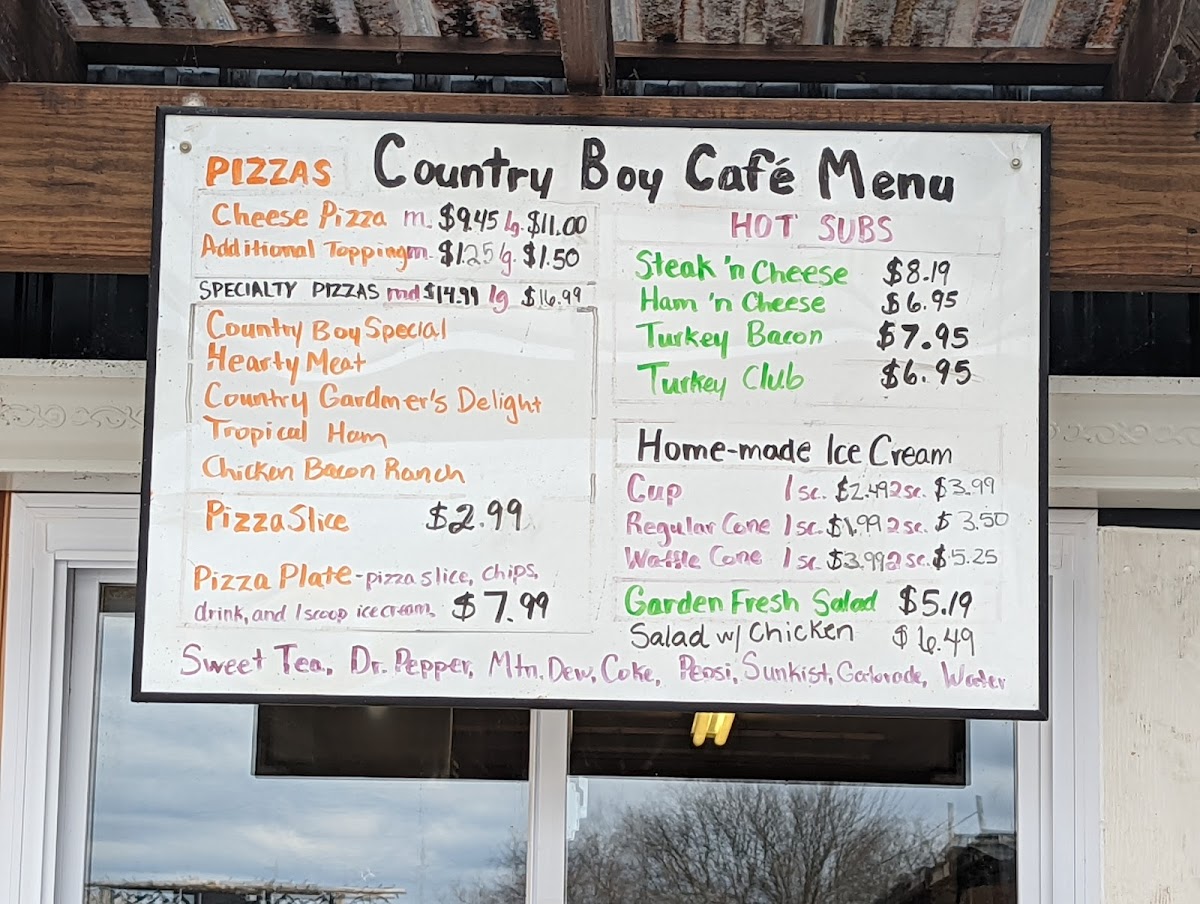 Country Boy Café Menu
PIZZAS
Cheese Pizza m. $9.45 lg. $11.00
Additional Topping m. $1.25 lg. $1.50
SPECIALTY PIZZAS md $14.99 lg $16.99
Country Boy Special
Hearty Meat
Country Gardmer's Delight
Tropical Ham
Chicken Bacon Ranch
Pizza Slice $2.99
Pizza Plate - pizza slice, chips,
drink, and 1 scoop ice cream. $7.99
HOT SUBS
Steak 'n Cheese $8.19
Ham 'n Cheese $6.95
Turkey Bacon $7.95
Turkey Club $6.95
Home-made Ice Cream
Cup 1 sc. $2.49 2 sc. $3.99
Regular Cone 1 sc. $1.99 2 sc. $3.50
Waffle Cone 1 sc. $3.99 2 sc. $5.25
Garden Fresh Salad $5.19
Salad w/ Chicken $6.49
Sweet Tea, Dr. Pepper, Mtn. Dew, Coke, Pepsi, Sunkist, Gatorade, Water